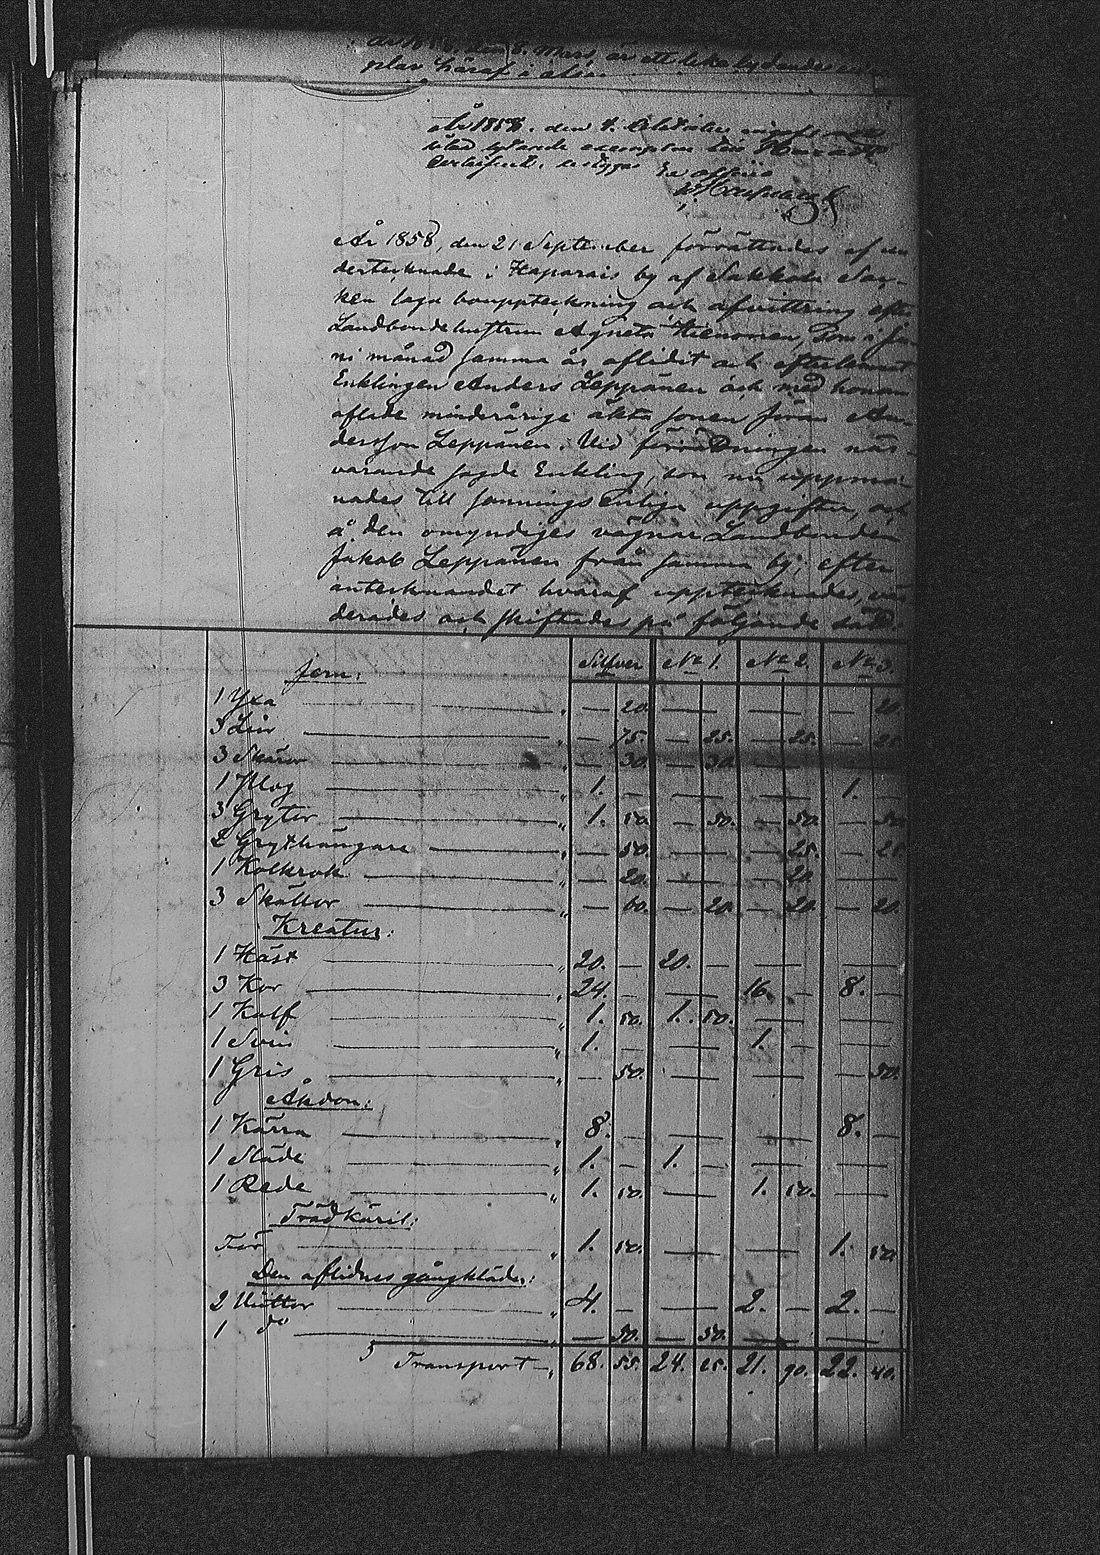 den 8. Mars, är ett lika lydandes
plar häraf i
År 1858. den 4. Oktober ingaf
lika lydande exemplar
Certifierat. betygar Ex officio
År 1858, den 21 September förrättades af un
dertecknade i Haparais by af Sakkola Soc-
ken laga bouppteckning och afvittring efter
Landbondehustrun Agneta Hienonen, som i Ju
ni månad samma år aflidit och efterlemnat
Enklingen Anders Leppänen och med honom
aflade minderårige äkta sonen An-
dersson Leppänen. Vid förrättningen när-
varande sagde Enkling, som nu uppma-
nades till sanningsenliga uppgifter, och
å den omyndiges vägnar Landbonden
Jakob Leppänen från samma by; efter
anteknandet hvaraf uppteknades, vär
derades och skiftades på följande sätt:
Silfver No 1. No 2. No 3.
Jern:
1 Yxa — 20. — — 20.
3 Liar — 75. — 25. — 25. — 25.
3 Skäror — 30. — 30. — —
1 Plog 1. — — — 1. —
3 Grytor 1. 50. — 50. — 50. — 50.
2 Grythängare — 50. — — 25. — 25.
1 Kolkrok — 20. — — 20. —
3 Skällor — 60. — 20. — 20. — 20.
Kreatur:
1 Häst 20. — 20. — — —
3 Kor 24. — — 16. — 8. —
1 Kalf 1. 50. 1. 50. — —
1 Svin 1. — — 1. — —
1 Gris — 50. — — — 50.
Åkdon:
1 Kärra 8. — — — 8. —
1 Släde 1. — 1. — — —
1 Rede 1. 50. — 1. 50. —
Trädkäril:
För 1. 50. — — 1. 50.
Den aflidnes gångkläder:
2 4. — — 2. — 2. —
1 do — 50. — 50. — —
Transport 68. 55. 24. 25. 21. 90. 22. 40.